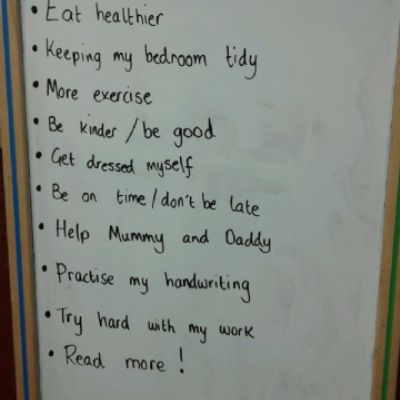 • Eat healthier
• Keeping my bedroom tidy
• More exercise
• Be kinder / be good
• Get dressed myself
• Be on time / don't be late
• Help Mummy and Daddy
• Practise my handwriting
• Try hard with my work
• Read more !